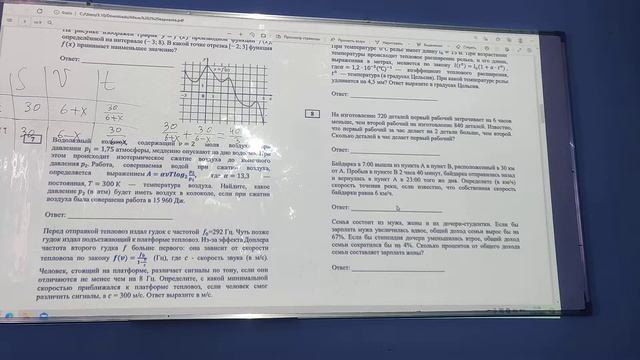 Файл
C:/Users/
определённой на интервале (−3; 8). В какой точке отрезка [−2; 3] функция
f(x) принимает наименьшее значение?
Ответ:
S V t
30 6+x 30/6+x
30 6−x 30
30/6+x + 30/6−x =
7
Водолазный колокол, содержащий ν = 2 моля воздуха при
давлении p₁ = 1,75 атмосферы, медленно опускают на дно водоёма. При
этом происходит изотермическое сжатие воздуха до конечного
давления p₂. Работа, совершаемая водой при сжатии воздуха,
определяется выражением A = ανT log₂ p₂/p₁, где α = 13,3 —
постоянная, T = 300 K — температура воздуха. Найдите, какое
давление p₂ (в атм) будет иметь воздух в колоколе, если при сжатии
воздуха была совершена работа в 15 960 Дж.
Ответ:
Перед отправкой тепловоз издал гудок с частотой f₀=292 Гц. Чуть позже
гудок издал подъезжающий к платформе тепловоз. Из-за эффекта Доплера
частота второго гудка f больше первого: она зависит от скорости
тепловоза по закону f(v) = f₀/(1−v/c) (Гц), где c - скорость звука (в м/с).
Человек, стоящий на платформе, различает сигналы по тону, если они
отличаются не менее чем на 8 Гц. Определите, с какой минимальной
скоростью приближался к платформе тепловоз, если человек смог
различить сигналы, а c = 300 м/с. Ответ выразите в м/с.
При температуре 0°C рельс имеет длину l₀ = 15 м. При возрастании
температуры происходит тепловое расширение рельса, и его длина,
выраженная в метрах, меняется по закону l(t°) = l₀(1 + α · t°),
где α = 1,2 · 10⁻⁵(°C)⁻¹ — коэффициент теплового расширения,
t° — температура (в градусах Цельсия). При какой температуре рельс
удлинится на 4,5 мм? Ответ выразите в градусах Цельсия.
Ответ:
8
На изготовление 720 деталей первый рабочий затрачивает на 6 часов
меньше, чем второй рабочий на изготовление 840 деталей. Известно,
что первый рабочий за час делает на 2 детали больше, чем второй.
Сколько деталей в час делает первый рабочий?
Ответ:
Байдарка в 7:00 вышла из пункта А в пункт В, расположенный в 30 км
от А. Пробыв в пункте В 2 часа 40 минут, байдарка отправилась назад
и вернулась в пункт А в 23:00 того же дня. Определите (в км/ч)
скорость течения реки, если известно, что собственная скорость
байдарки равна 6 км/ч.
Ответ:
Семья состоит из мужа, жены и их дочери-студентки. Если бы
зарплата мужа увеличилась вдвое, общий доход семьи вырос бы на
67%. Если бы стипендия дочери уменьшилась втрое, общий доход
семьи сократился бы на 4%. Сколько процентов от общего дохода
семьи составляет зарплата жены?
Ответ: